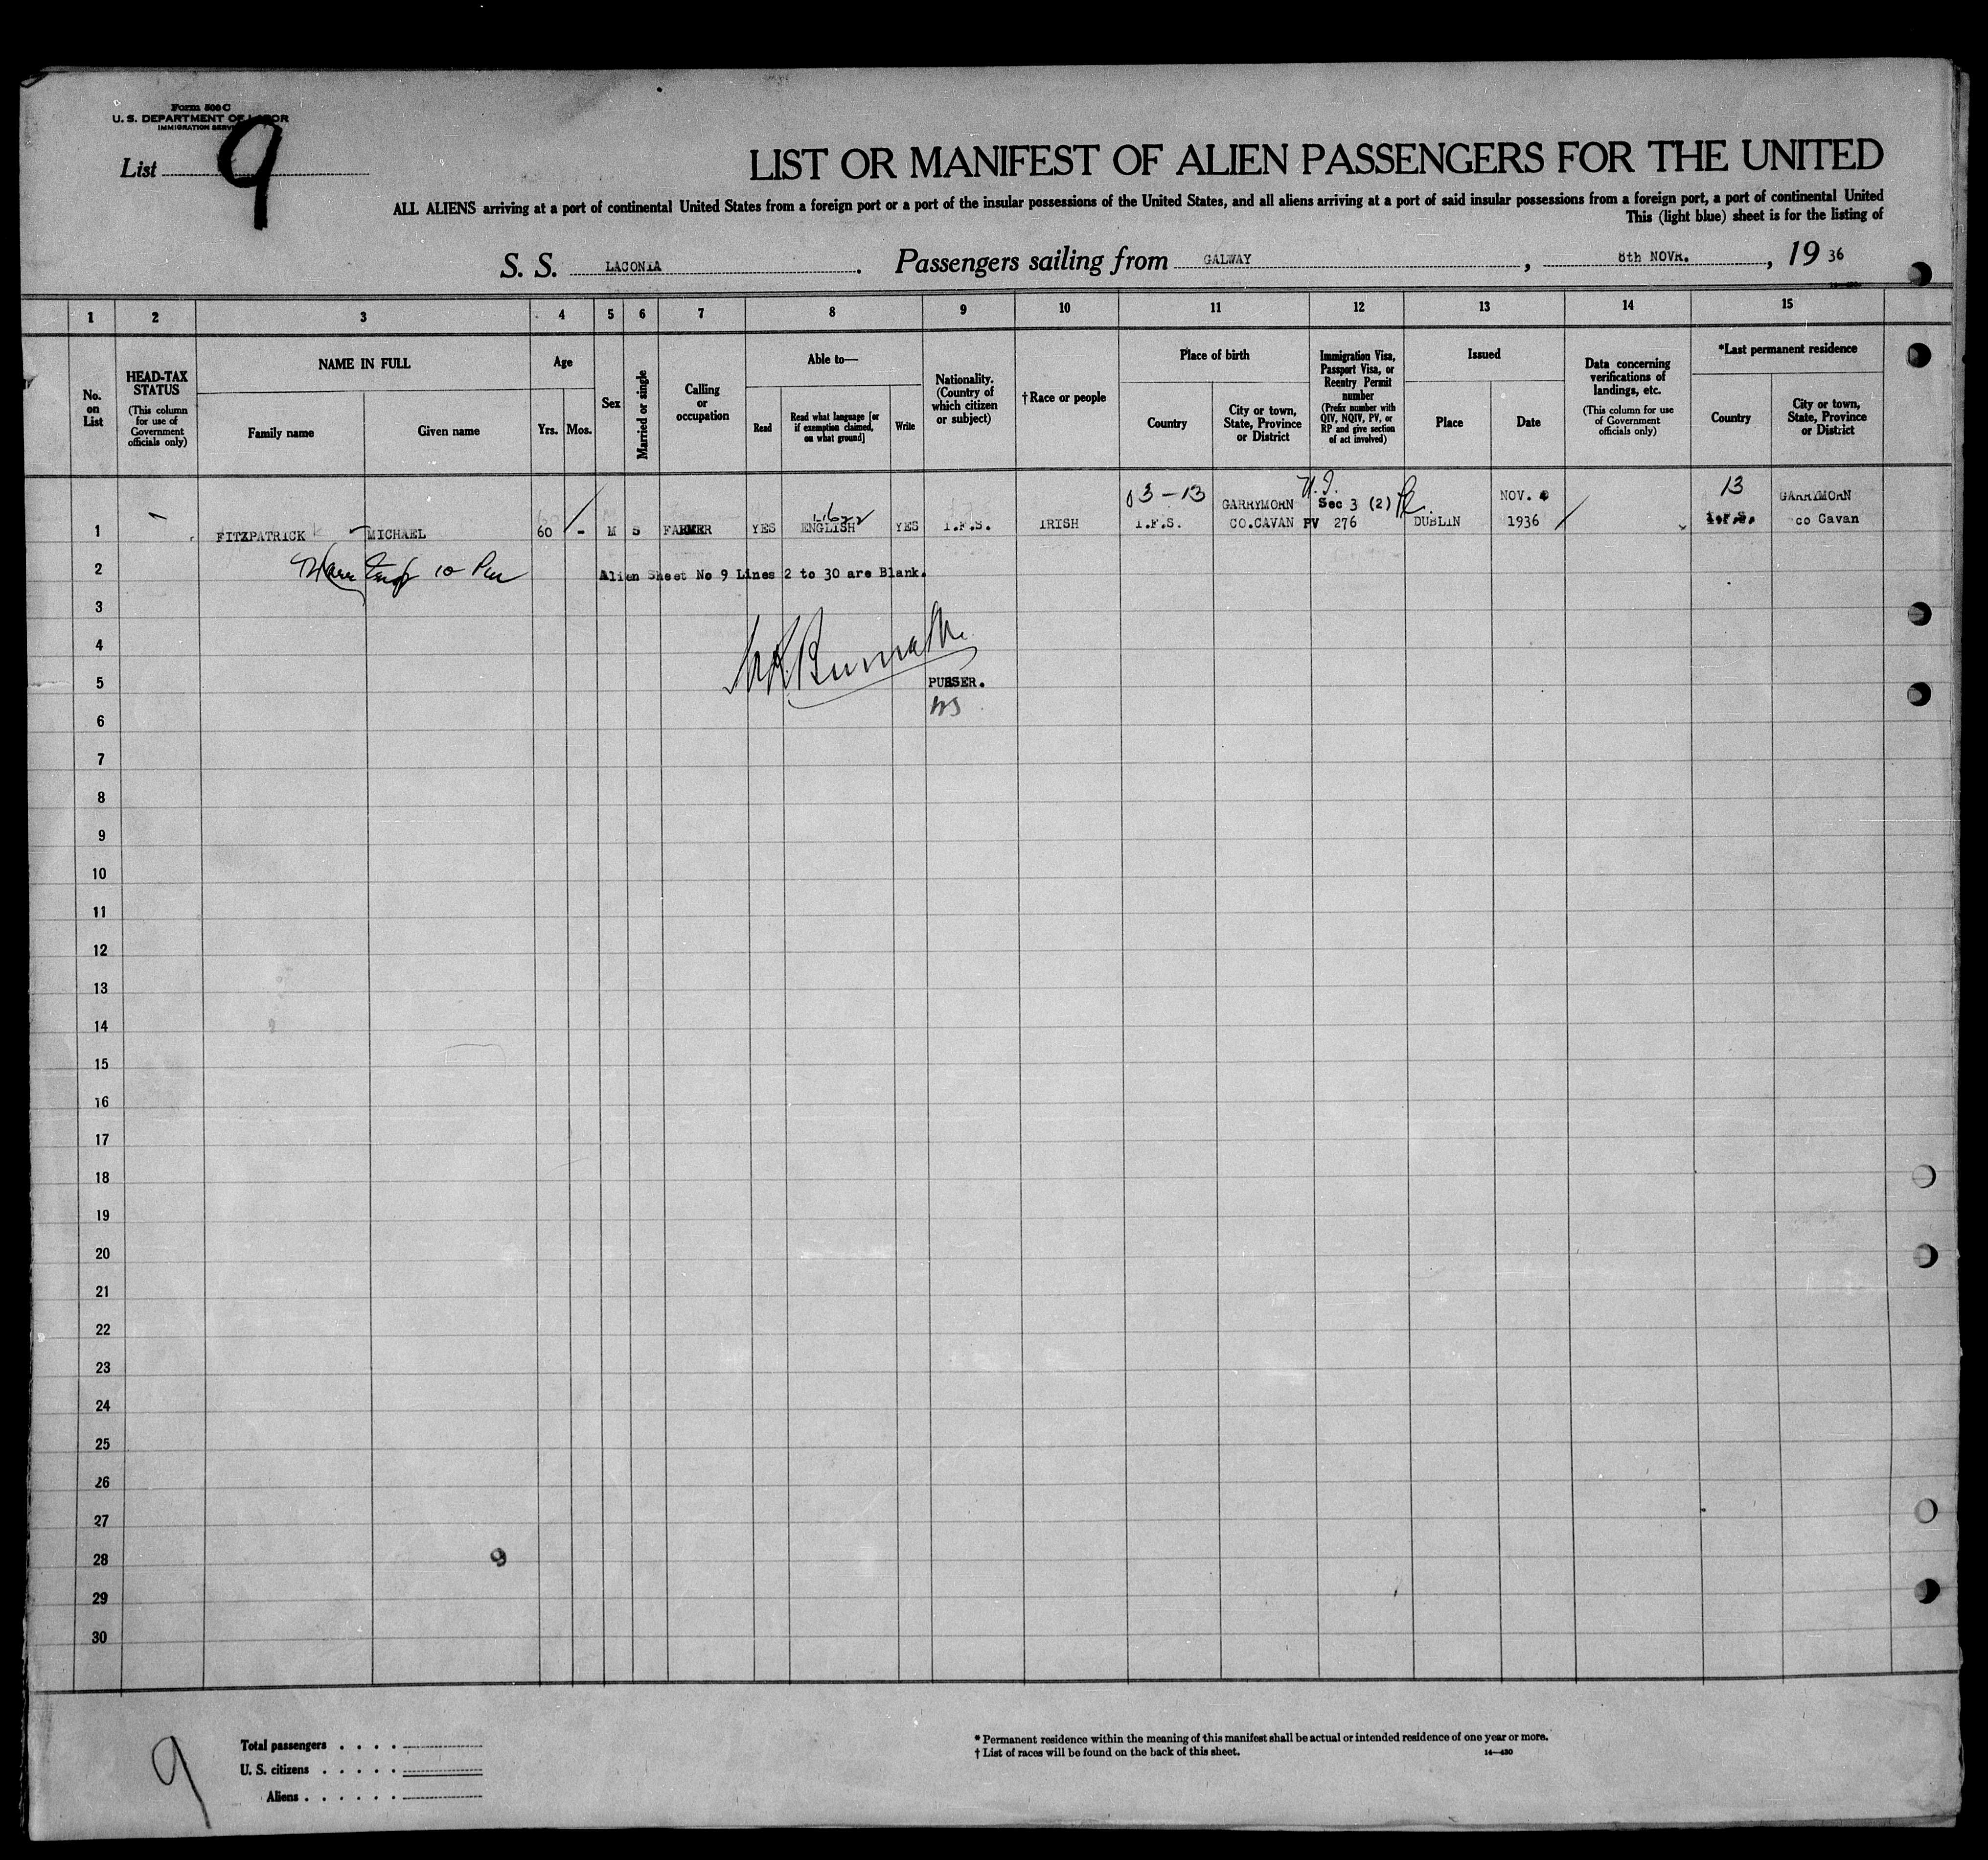 Form 500 C
U. S. DEPARTMENT OF LABOR
IMMIGRATION SERVICE
List 9
LIST OR MANIFEST OF ALIEN PASSENGERS FOR THE UNITED
ALL ALIENS arriving at a port of continental United States from a foreign port or a port of the insular possessions of the United States, and all aliens arriving at a port of said insular possessions from a foreign port, a port of continental United
This (light blue) sheet is for the listing of
S. S. LACONIA. Passengers sailing from GALWAY, 8th NOVR., 19 36
1 2 3 4 5 6 7 8 9 10 11 12 13 14 15
No. on List
HEAD-TAX STATUS
(This column for use of Government officials only)
NAME IN FULL
Family name
Given name
Age
Yrs. Mos.
Sex
Married or single
Calling or occupation
Able to—
Read
Read what language [or if exemption claimed, on what ground]
Write
Nationality. (Country of which citizen or subject)
†Race or people
Place of birth
Country
City or town, State, Province or District
Immigration Visa, Passport Visa, or Reentry Permit number
(Prefix number with QIV, NQIV, PV, or RP and give section of act involved)
Issued
Place
Date
Data concerning verifications of landings, etc.
(This column for use of Government officials only)
*Last permanent residence
Country
City or town, State, Province or District
03-13 GARRYMORN Sec 3 (2) NOV. 13 GARRYMORN
1 FITZPATRICK MICHAEL 60 - M S FARMER YES ENGLISH YES I.F.S. IRISH I.F.S. CO.CAVAN PV 276 DUBLIN 1936 I.F.S. co Cavan
2 Alien Sheet No 9 Lines 2 to 30 are Blank.
3
4
5 PURSER.
6
7
8
9
10
11
12
13
14
15
16
17
18
19
20
21
22
23
24
25
26
27
28 9
29
30
9
Total passengers . . . .
U. S. citizens . . . . .
Aliens . . . . . .
* Permanent residence within the meaning of this manifest shall be actual or intended residence of one year or more.
† List of races will be found on the back of this sheet.
14—430